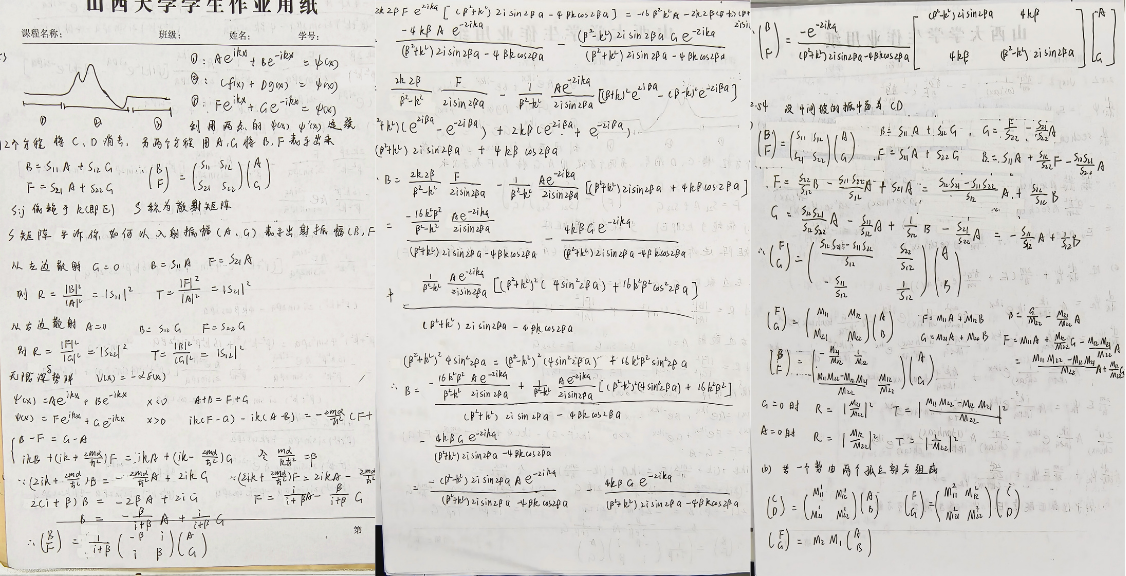 山西大学学生作业用纸
课程名称: 班级: 姓名: 学号:
①: Ae^{ikx} + Be^{-ikx} = ψ(x)
②: Cf(x) + Dg(x) = ψ(x)
③: Fe^{ikx} + Ge^{-ikx} = ψ(x)
① ② ③
利用两点的 ψ(x) ψ'(x) 连续
2个方程 将 C, D 消去, 另两方程 用 A, G 将 B, F 表示出来
B = S₁₁A + S₁₂G
F = S₂₁A + S₂₂G
∴ (B F) = (S₁₁ S₁₂ S₂₁ S₂₂)(A G)
Sij 依赖于 k(即E) S 称为散射矩阵
S矩阵告诉你如何从入射振幅(A, G) 表示出射振幅(B, F
从左边散射 G=0 B = S₁₁A F = S₂₁A
则 R = |B|²/|A|² = |S₁₁|² T = |F|²/|A|² = |S₂₁|²
从右边散射 A=0 B = S₁₂G F = S₂₂G
则 R = |F|²/|G|² = |S₂₂|² T = |B|²/|G|² = |S₁₂|²
δ势阱 V(x) = -αδ(x)
ψ(x) = Ae^{ikx} + Be^{-ikx} x<0 A+B = F+G
ψ(x) = Fe^{ikx} + Ge^{-ikx} x>0 ik(F-G) - ik(A-B) = -2mα/ħ² (F+
B-F = G-A
ikB + (ik + 2mα/ħ²)F = ikA + (ik - 2mα/ħ²)G 令 mα/kħ² = β
∵ (2ik + 2mα/ħ²)B = -2mα/ħ² A + 2ikG ∵ (2ik + 2mα/ħ²)F = 2ikA - 2mα/ħ²
2(i+β)B = -2βA + 2iG F = i/(i+β) A - β/(i+β) G
B = -β/(i+β) A + i/(i+β) G
∴ (B F) = 1/(i+β) (-β i i β)(A G)
第
2k2βF e^{2ika} [(β²+k²) 2i sin2βa - 4βk cos2βa] = -16β²k²A - 2k2β(β²+k²)
-4kβ A e^{-2ika} / (β²+k²) 2i sin2βa - 4βk cos2βa - (β²-k²) 2i sin2βa G e^{-2ika} / (β²+k²) 2i sin2βa - 4βk cos2βa
2k2β/(β²-k²) F/(2i sin2βa) - 1/(β²-k²) Ae^{-2ika}/(2i sin2βa) [(β+k)² e^{2iβa} - (β-k)² e^{-2iβa}]
²+k²)(e^{2iβa} - e^{-2iβa}) + 2kβ(e^{2iβa} + e^{-2iβa})
(β²+k²) 2i sin2βa + 4kβ cos2βa
∴ B = 2k2β/(β²-k²) F/(2i sin2βa) - 1/(β²-k²) Ae^{-2ika}/(2i sin2βa) [(β²+k²) 2i sin2βa + 4kβ cos2βa]
= -16k²β²/(β²-k²) Ae^{-2ika}/(2i sin2βa) / (β²+k²) 2i sin2βa - 4βk cos2βa - 4kβG e^{-2ika} / (β²+k²) 2i sin2βa - 4βk cos2βa
+ 1/(β²-k²) Ae^{-2ika}/(2i sin2βa) [(β²+k²)²(4 sin²2βa) + 16k²β² cos²2βa] / (β²+k²) 2i sin2βa - 4βk cos2βa
(β²+k²)² 4sin²2βa = (β²-k²)² (4sin²2βa) + 16k²β² sin²2βa
∴ B = -16k²β²/(β²-k²) Ae^{-2ika}/(2i sin2βa) + 1/(β²-k²) Ae^{-2ika}/(2i sin2βa) [(β²-k²)²(4sin²2βa) + 16k²β²] / (β²+k²) 2i sin2βa - 4βk cos2βa
- 4kβG e^{-2ika} / (β²+k²) 2i sin2βa - 4βk cos2βa
= -(β²-k²) 2i sin2βa Ae^{-2ika} / (β²+k²) 2i sin2βa - 4βk cos2βa - 4kβG e^{-2ika} / (β²+k²) 2i sin2βa - 4βk cos2βa
(B F) = -e^{-2ika} / (β²+k²) 2i sin2βa - 4βk cos2βa [(β²-k²) 2i sin2βa 4kβ 4kβ (β²-k²) 2i sin2βa] [A G]
2.54 设中间波的振幅为 CD
(B F) = (S₁₁ S₁₂ S₂₁ S₂₂)(A G) B = S₁₁A + S₁₂G, G = F/S₂₂ - S₂₁/S₂₂ A
F = S₂₁A + S₂₂G B = S₁₁A + S₁₂/S₂₂ F - S₁₂S₂₁/S₂₂ A
∴ F = S₂₂/S₁₂ B - S₁₁S₂₂/S₁₂ A + S₂₁A = (S₁₂S₂₁ - S₁₁S₂₂)/S₁₂ A + S₂₂/S₁₂ B
G = S₁₁S₂₁/S₁₂S₂₂ A - S₂₁/S₂₂ A + 1/S₁₂ B - S₂₁/S₂₂ A = -S₁₁/S₁₂ A + 1/S₁₂ B
∴ (F G) = ((S₁₂S₂₁ - S₁₁S₂₂)/S₁₂ S₂₂/S₁₂ -S₁₁/S₁₂ 1/S₁₂)(A B)
(F G) = (M₁₁ M₁₂ M₂₁ M₂₂)(A B) F = M₁₁A + M₁₂B B = G/M₂₂ - M₂₁/M₂₂ A
G = M₂₁A + M₂₂B F = M₁₁A + M₁₂/M₂₂ G - M₁₂M₂₁/M₂₂ A
(B F) = (-M₂₁/M₂₂ 1/M₂₂ (M₁₁M₂₂ - M₁₂M₂₁)/M₂₂ M₁₂/M₂₂)(A G) = (M₁₁M₂₂ - M₁₂M₂₁)/M₂₂ A + M₁₂/M₂₂ G
G=0时 R = |M₂₁/M₂₂|² T = |(M₁₁M₂₂ - M₁₂M₂₁)/M₂₂|²
A=0时 R = |M₁₂/M₂₂|² T = |1/M₂₂|²
(b) 若一个势由两个孤立部分组成
(C D) = (M¹₁₁ M¹₁₂ M¹₂₁ M¹₂₂)(A B) (F G) = (M²₁₁ M²₁₂ M²₂₁ M²₂₂)(C D)
(F G) = M₂ M₁ (A B)